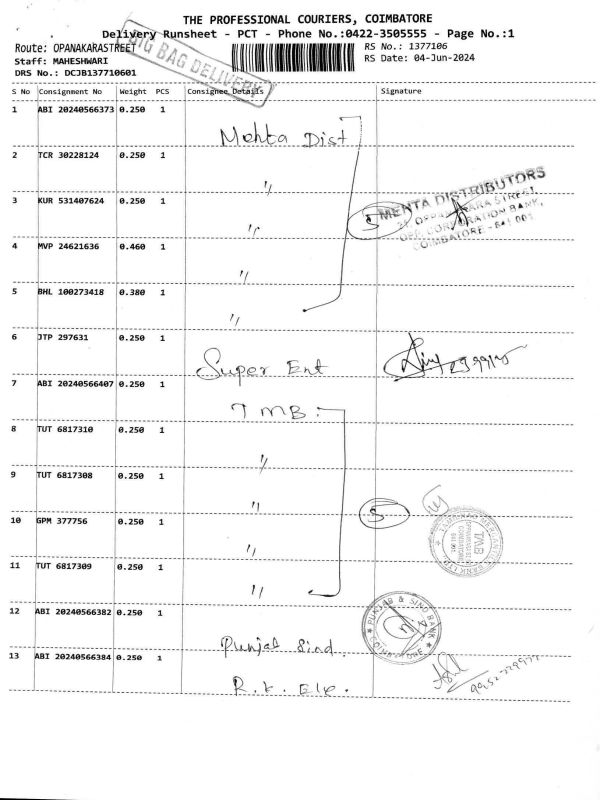 THE PROFESSIONAL COURIERS, COIMBATORE
Delivery Runsheet - PCT - Phone No.:0422-3505555 - Page No.:1
Route: OPANAKARASTREET
BIG BAG DELIVERY
RS No.: 1377106
Staff: MAHESHWARI
RS Date: 04-Jun-2024
DRS No.: DCJB137710601
S No Consignment No Weight PCS Consignee Details Signature
1 ABI 20240566373 0.250 1 Mehta Dist
2 TCR 30228124 0.250 1 "
3 KUR 531407624 0.250 1 " 5
MEHTA DISTRIBUTORS
OPP. CORPORATION BANK,
COIMBATORE - 641 001
4 MVP 24621636 0.460 1 "
5 BHL 100273418 0.380 1 "
6 JTP 297631 0.250 1 Super Ent
7 ABI 20240566407 0.250 1 TMB
8 TUT 6817310 0.250 1 "
9 TUT 6817308 0.250 1 " 5
10 GPM 377756 0.250 1 "
TAMILNAD MERCANTILE BANK LTD.
TMB
11 TUT 6817309 0.250 1 "
12 ABI 20240566382 0.250 1 Punjab Sind.
PUNJAB & SIND BANK
13 ABI 20240566384 0.250 1 R.K. Ele.